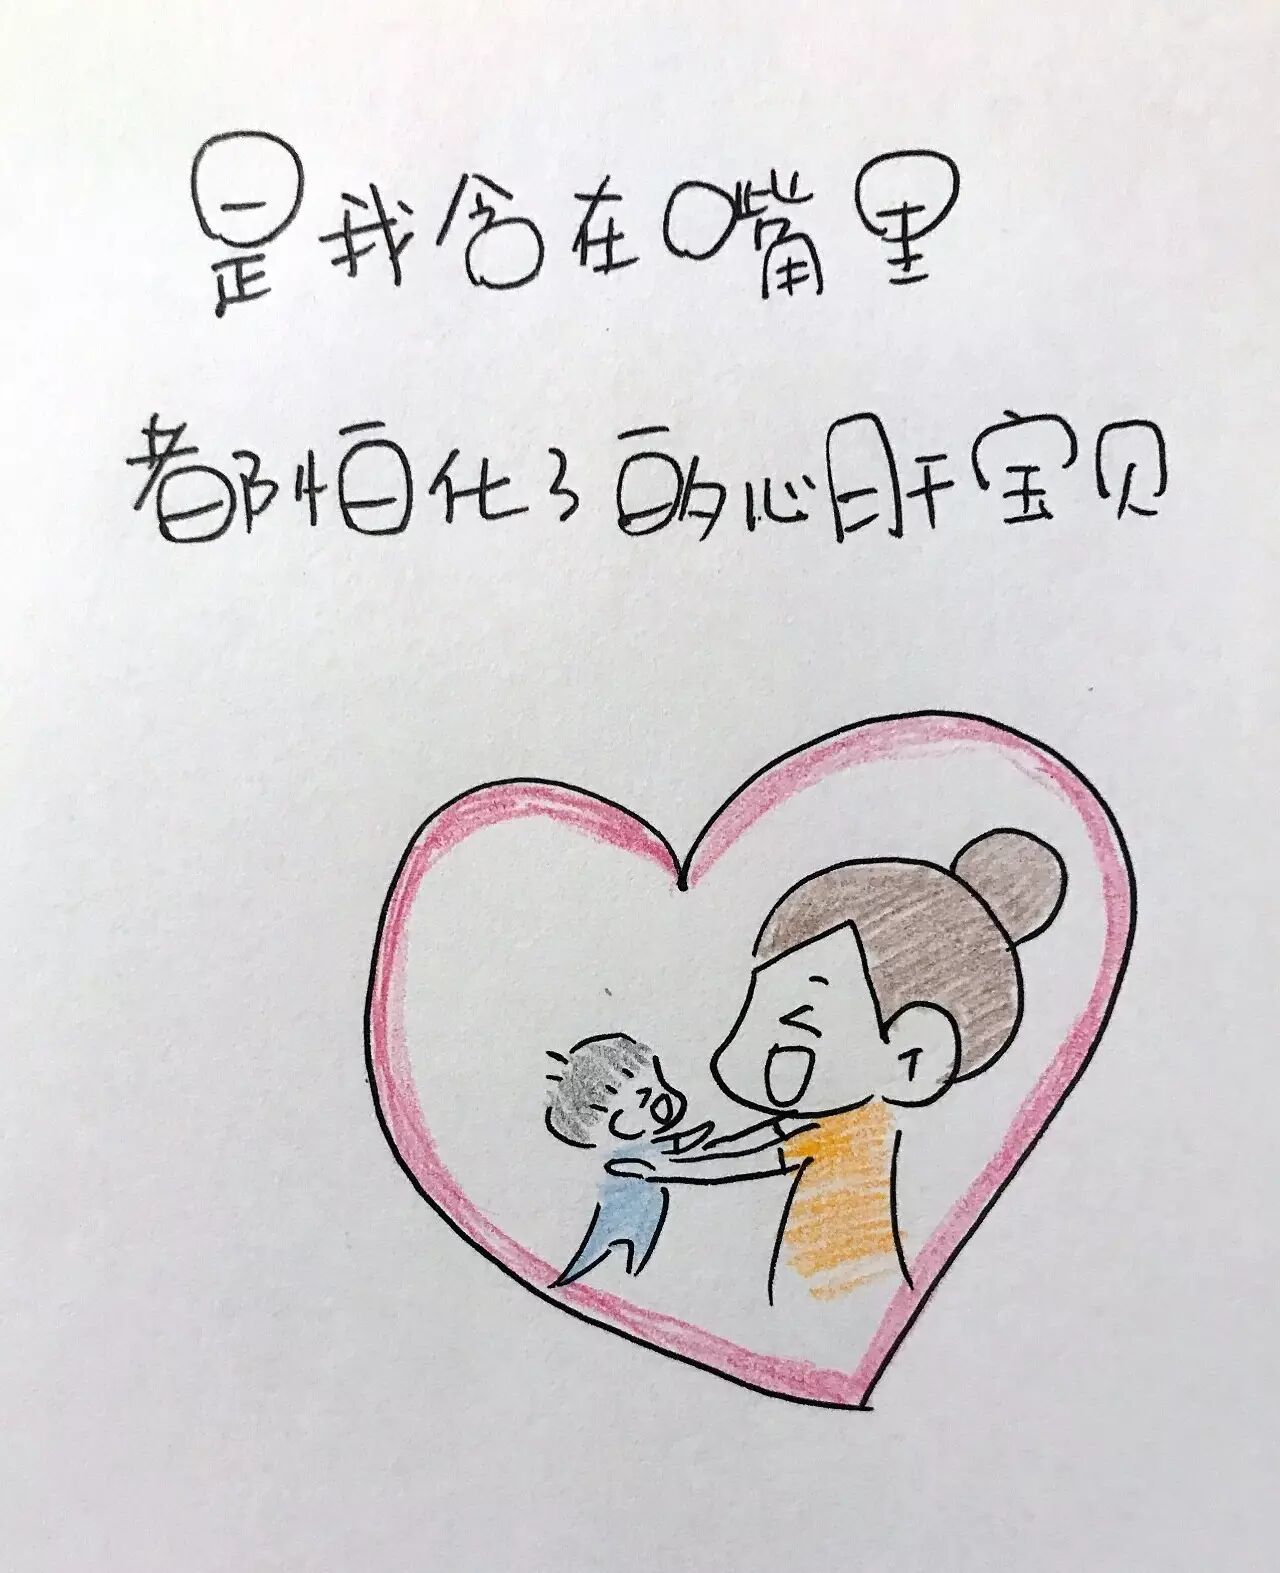 是我含在嘴里
都怕化了的心肝宝贝